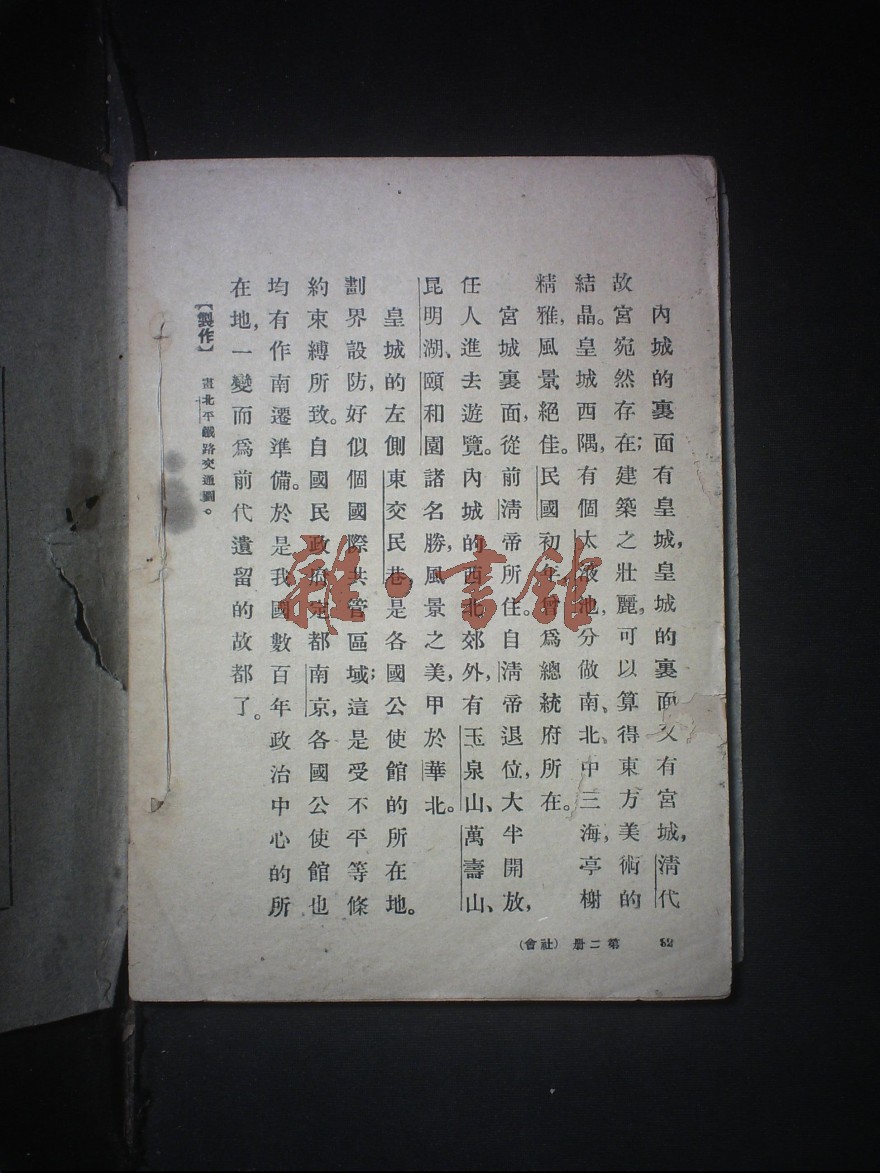 內城的裏面有皇城,皇城的裏面又有宮城,清代
故宮宛然存在;建築之壯麗,可以算得東方美術的
結晶。皇城西隅,有個太液池,分做南、北、中三海,亭榭
精雅,風景絕佳。民國初年曾爲總統府所在。
宮城裏面,從前清帝所住。自清帝退位,大半開放,
任人進去遊覽。內城的西北郊外,有玉泉山、萬壽山、
昆明湖、頤和園諸名勝,風景之美,甲於華北。
皇城的左側東交民巷,是各國公使館的所在地。
劃界設防,好似個國際共管區域;這是受不平等條
約束縛所致。自國民政府定都南京,各國公使館也
均有作南遷準備。於是我國數百年政治中心的所
在地,一變而爲前代遺留的故都了。
【製作】 畫北平鐵路交通圖。
第二册 (社會)
雜·書館